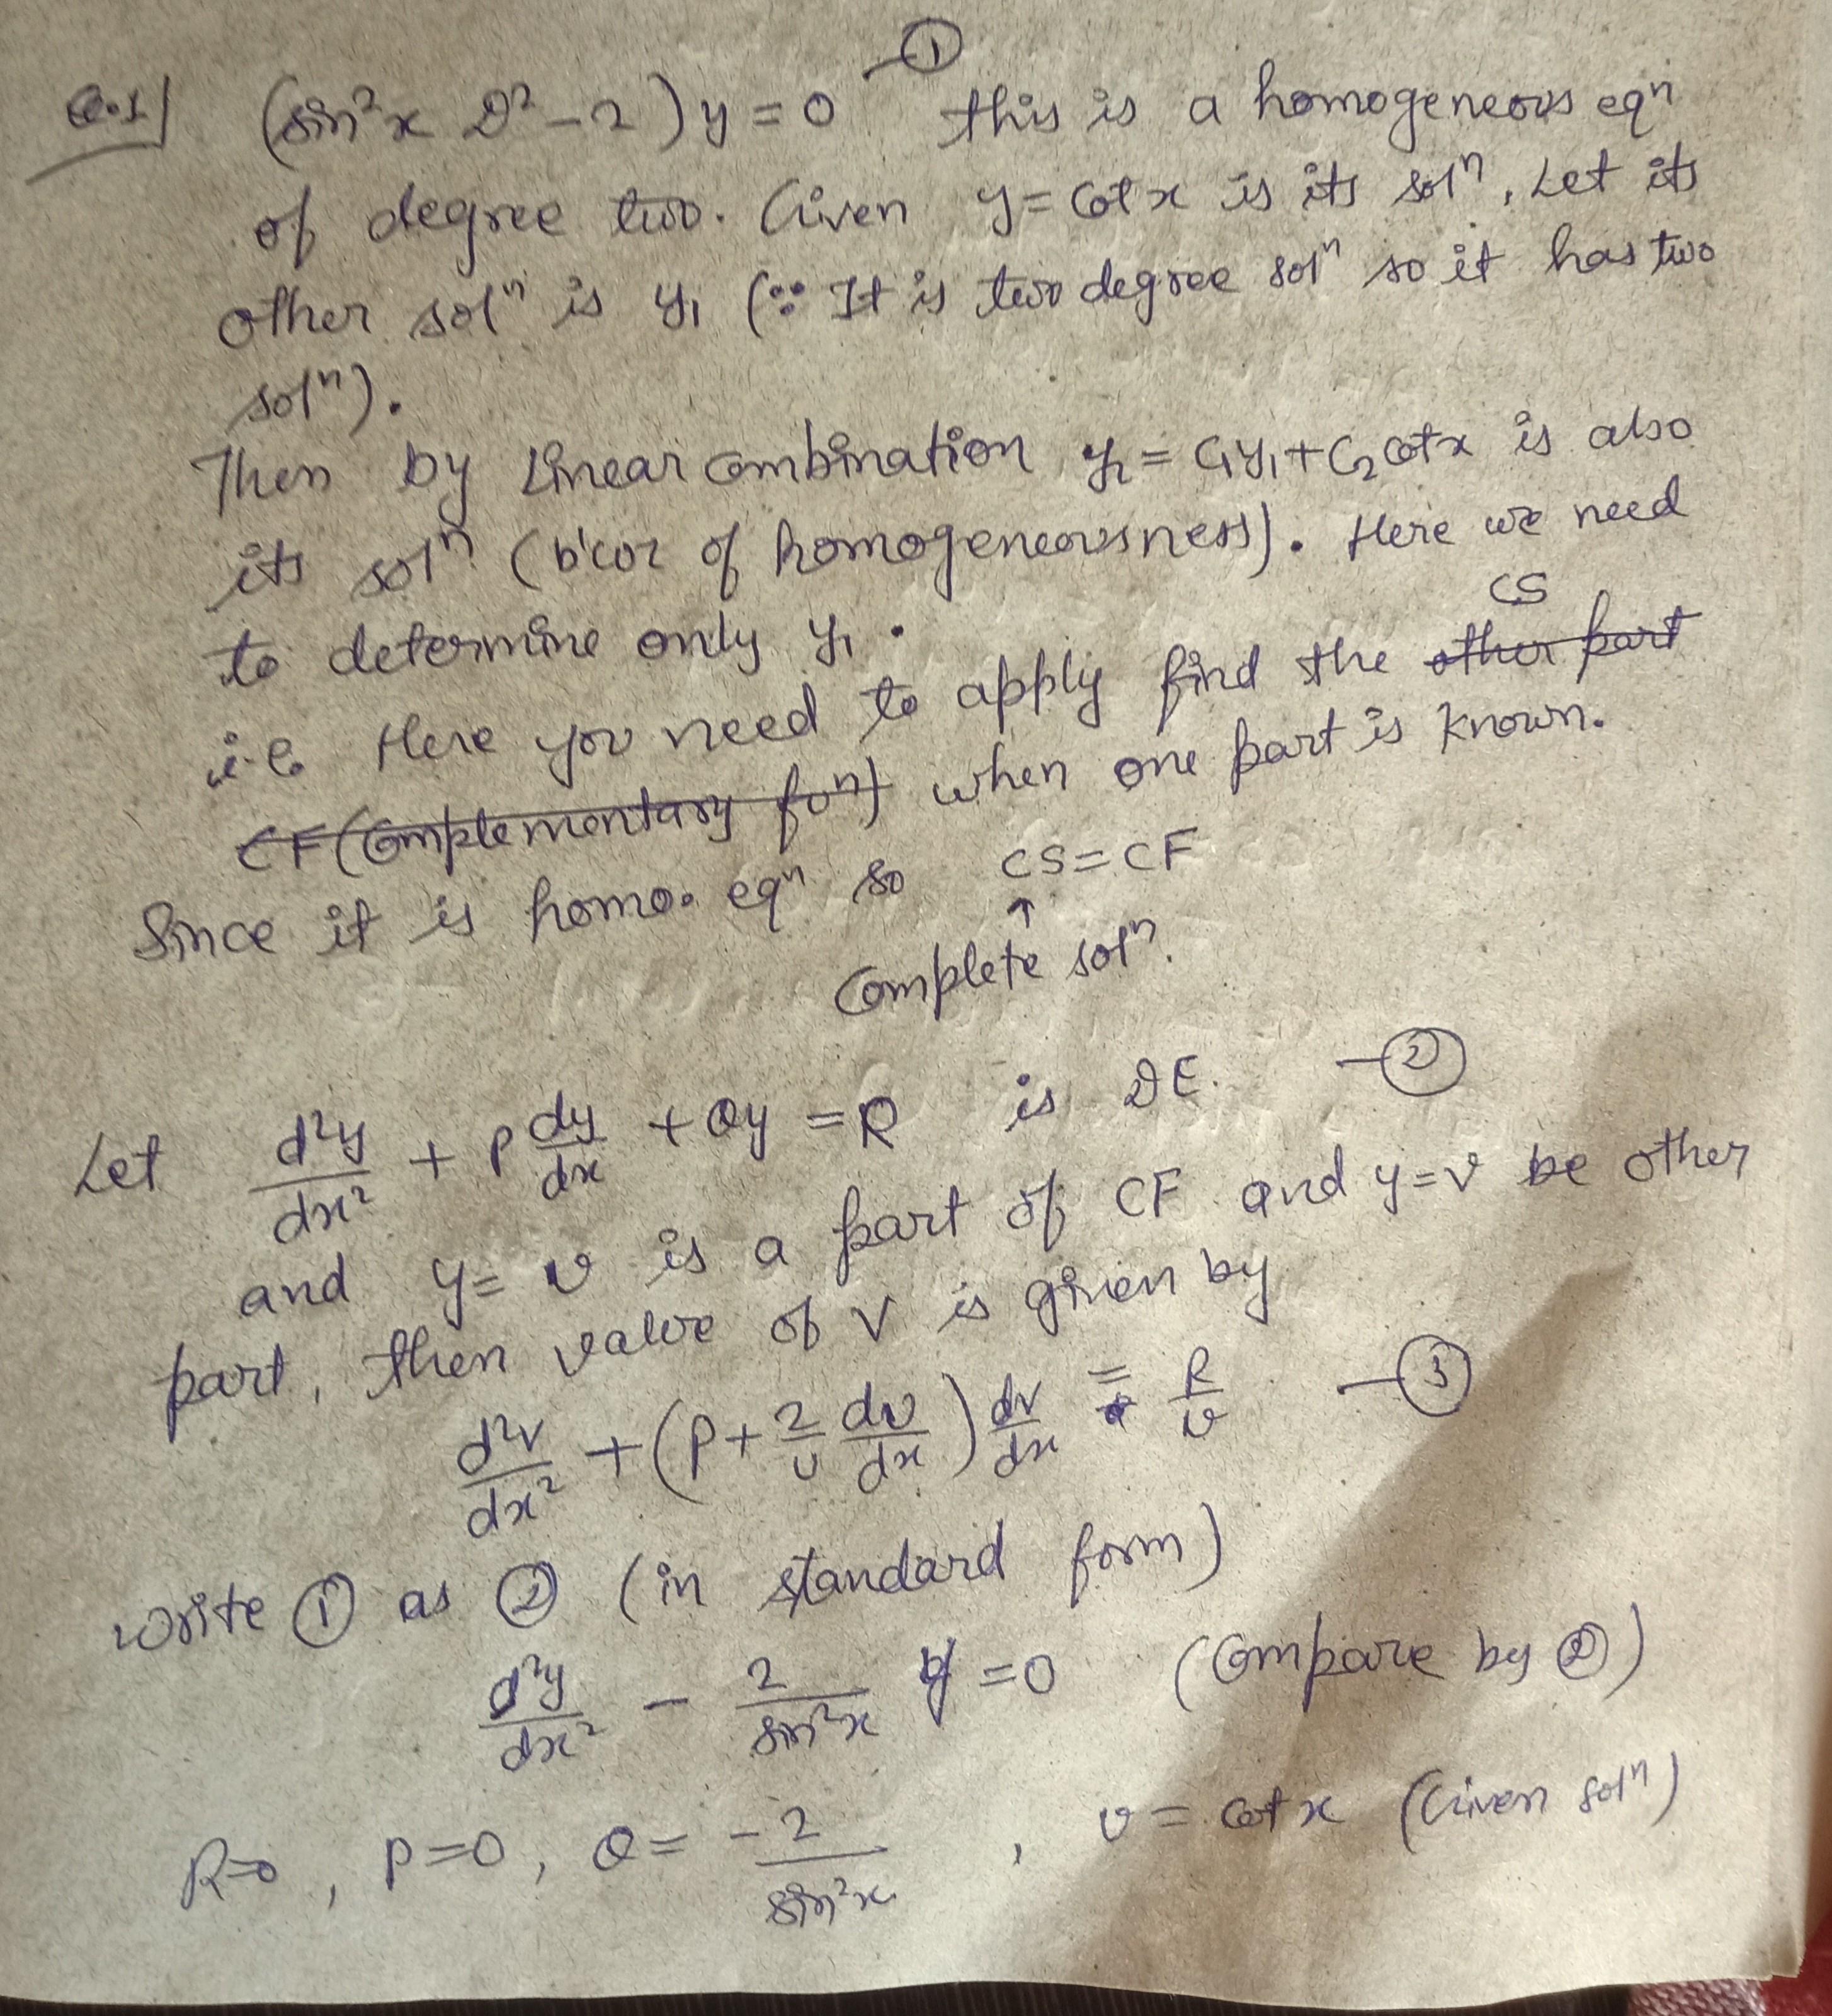 ①
Q.1) (sin²x D² - 2) y = 0 — this is a homogeneous eqⁿ
of degree two. Given y = cot x is its solⁿ, Let its
other solⁿ is y₁ (∵ It is two degree solⁿ so it has two
solⁿ).
Then by Linear combination y₂ = C₁y₁ + C₂cotx is also
its solⁿ (b'coz of homogeneousness). Here we need
to determine only y₁.
CS
i.e. Here you need to apply find the other part
CF (Complementary fuⁿ) when one part is known.
Since it is homo. eqⁿ so CS = CF
↑
Complete solⁿ.
Let d²y/dx² + P dy/dx + Qy = R is DE. — ②
and y = v is a part of CF and y = V be other
part, then value of V is given by
d²V/dx² + (P + 2/v dv/dx) dV/dx = R/v — ③
write ① as ② (in standard form)
d²y/dx² - 2/sin²x y = 0 (Compare by ②)
R=0, P=0, Q = -2/sin²x, v = cot x (Given solⁿ)